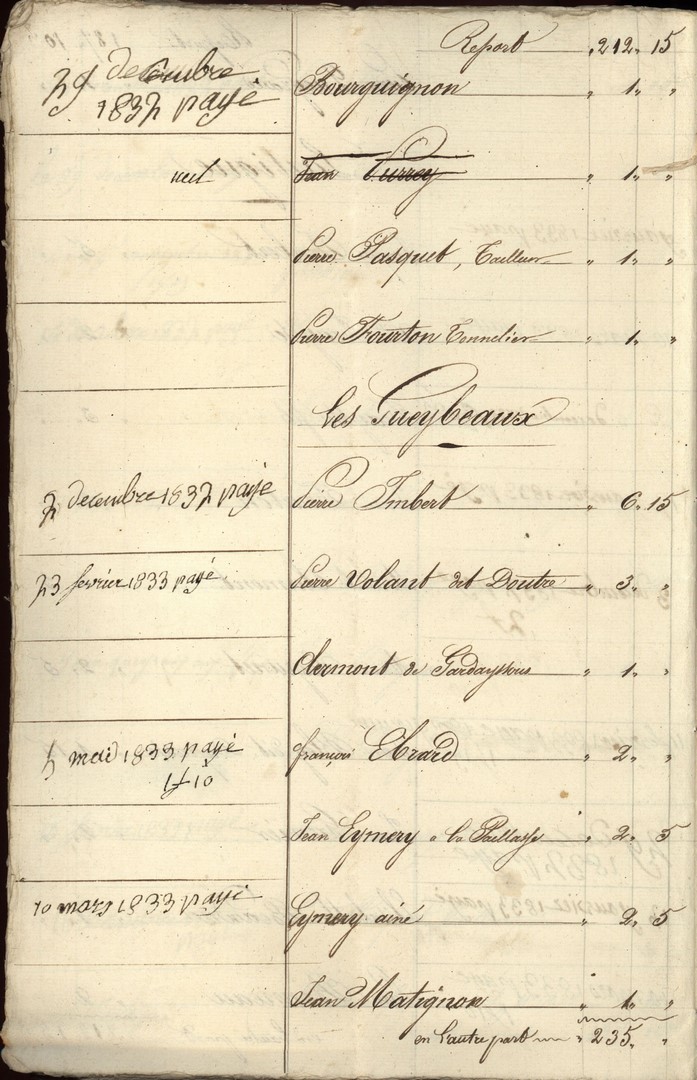 Report „ 212 „ 15
29 decembre
1832 payé
Bourguignon „ 1 „ „
nul Jean Purrey „ 1 „ „
Pierre Pasquet, Tailleur „ 1 „ „
Pierre Fourton Tonnelier „ 1 „ „
Les Gueybeaux
2 decembre 1832 payé Pierre Imbert „ 6 „ 15
23 fevrier 1833 payé Pierre Volant dit Doutre „ 3 „ „
Clermont de „ 1 „ „
mai 1833 payé françois Ebrard „ 2 „ „
1f 10
Jean Eymery a la Paillasse „ 2 „ 5
10 mars 1833 payé Eymery ainé „ 2 „ 5
Jean Matignon „ 1 „ „
en l'autre part „ 235 „ „